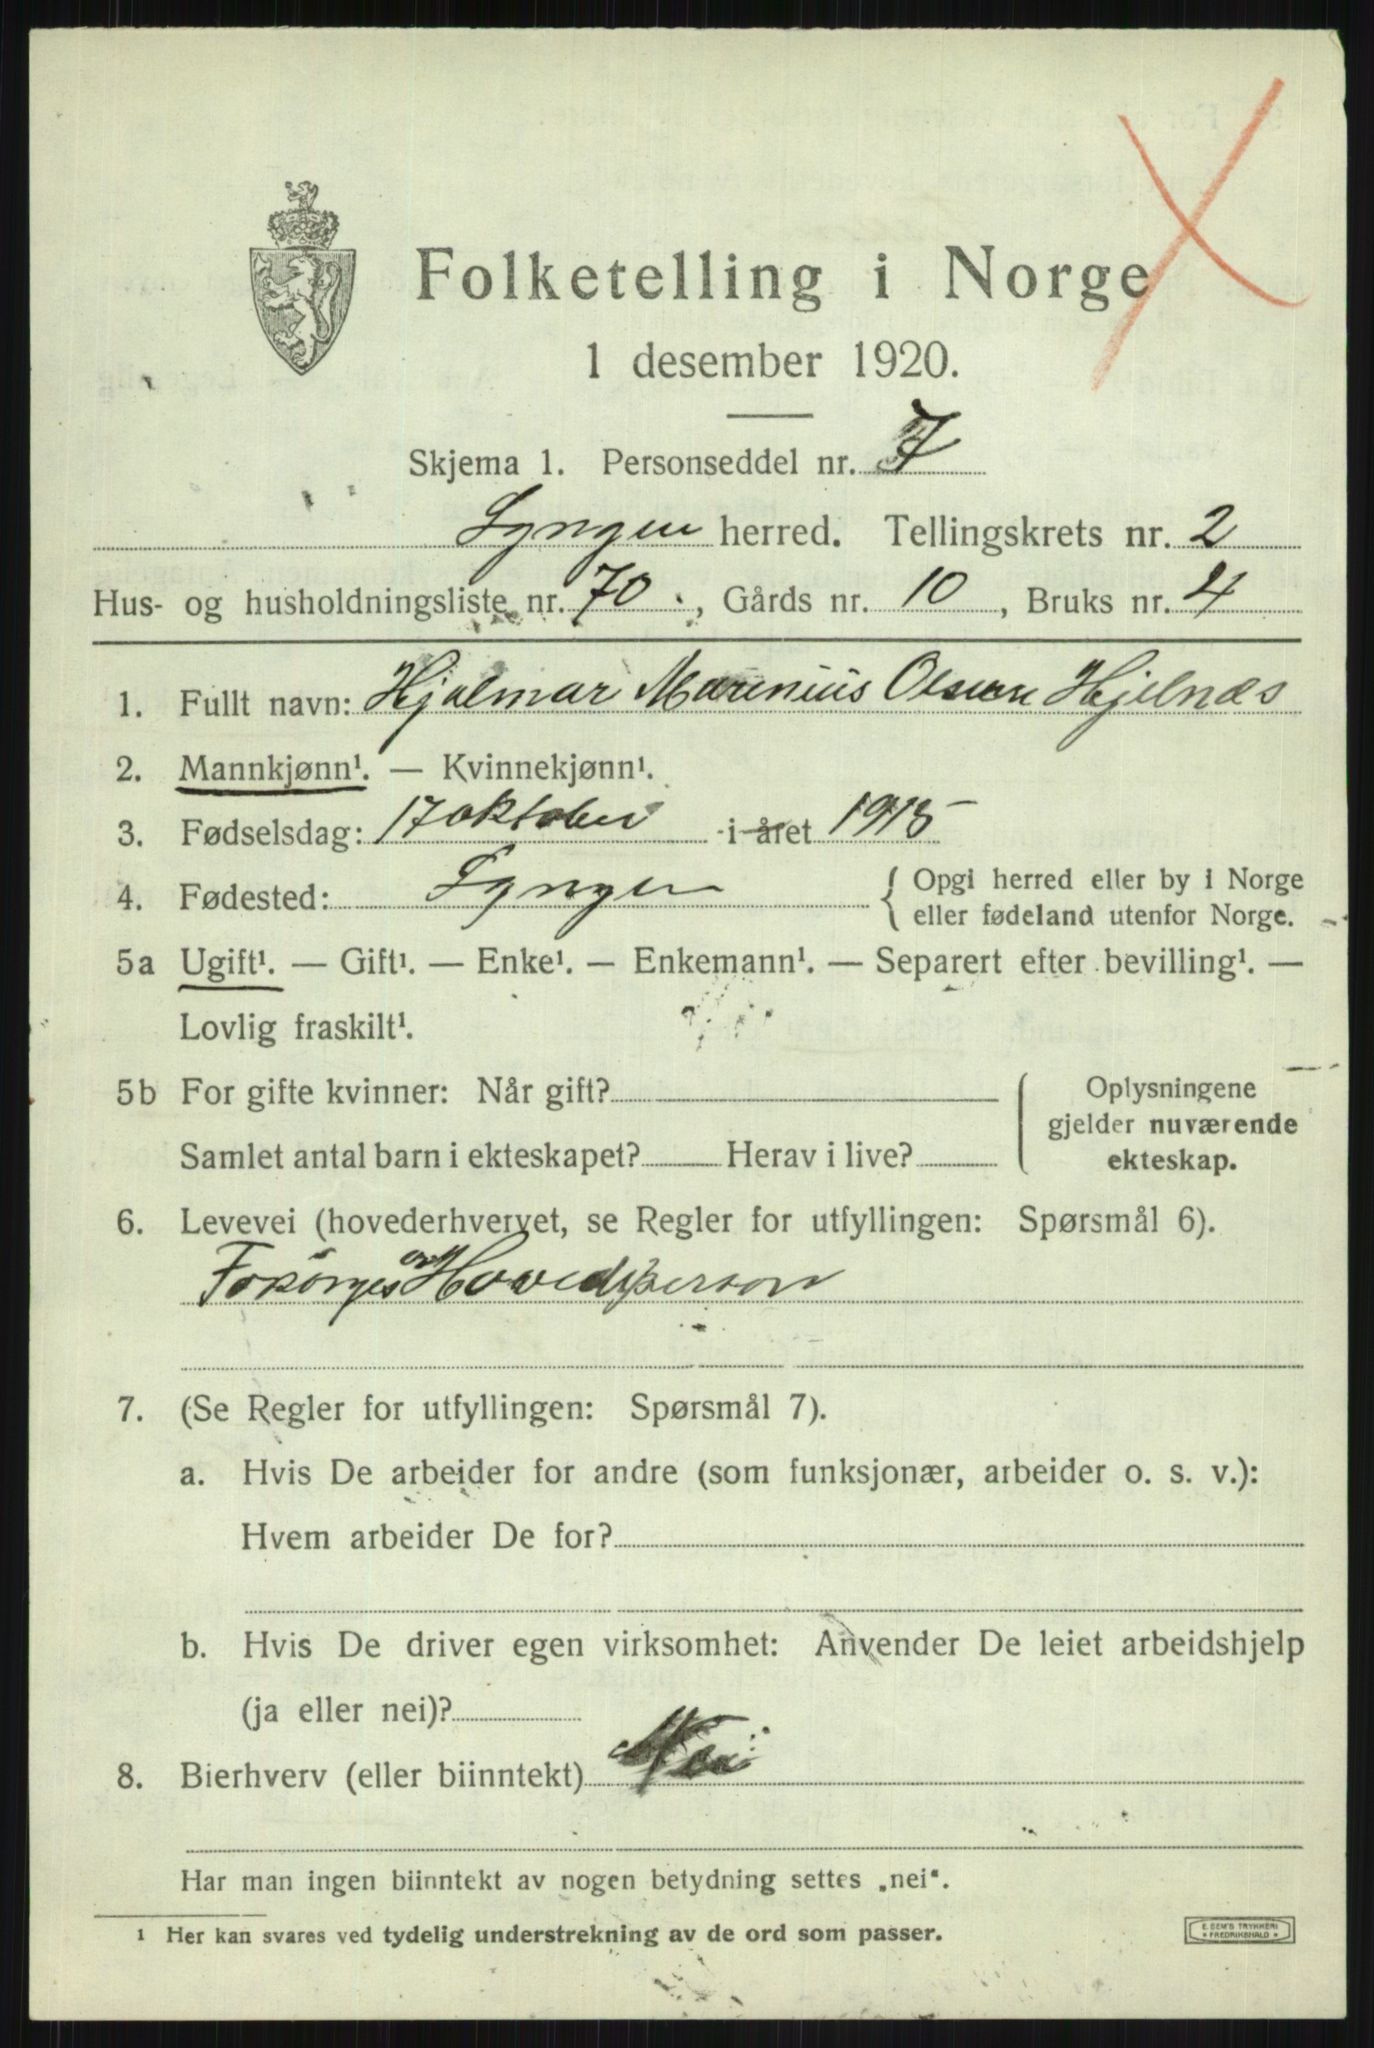 Folketelling i Norge
1 desember 1920.
Skjema 1. Personseddel nr. 7
Lyngen herred. Tellingskrets nr. 2
Hus- og husholdningsliste nr. 70., Gårds nr. 10, Bruks nr. 4
1. Fullt navn: Hjalmar Marenius Olsen Hjelnæs
2. Mannkjønn¹. — Kvinnekjønn¹.
3. Fødselsdag: 17 oktober i året 1915
4. Fødested: Lyngen { Opgi herred eller by i Norge
eller fødeland utenfor Norge.
5a Ugift¹. — Gift¹. — Enke¹. — Enkemann¹. — Separert efter bevilling¹. —
Lovlig fraskilt¹.
5b For gifte kvinner: Når gift?
Samlet antal barn i ekteskapet? Herav i live?
Oplysningene
gjelder nuværende
ekteskap.
6. Levevei (hovederhvervet, se Regler for utfyllingen: Spørsmål 6).
Forsørges av Hovedperson
7. (Se Regler for utfyllingen: Spørsmål 7).
a. Hvis De arbeider for andre (som funksjonær, arbeider o. s. v.):
Hvem arbeider De for?
b. Hvis De driver egen virksomhet: Anvender De leiet arbeidshjelp
(ja eller nei)?
8. Bierhverv (eller biinntekt) Nei
Har man ingen biinntekt av nogen betydning settes „nei“.
¹ Her kan svares ved tydelig understrekning av de ord som passer.
E. SEM'S TRYKKERI
* FREDRIKSHALD *